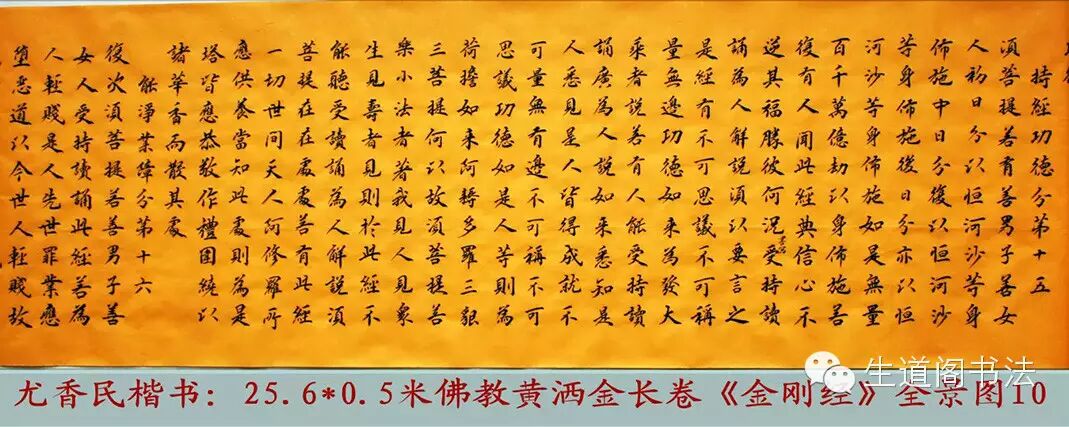 持經功德分第十五
須菩提若有善男子善女
人初日分以恒河沙等身
佈施中日分復以恒河沙
等身佈施後日分亦以恒
河沙等身佈施如是無量
百千萬億劫以身佈施若
復有人聞此經典信心不
逆其福勝彼何況書寫受持讀
誦為人解說須以要言之
是經有不可思議不可稱
量無邊功德如來為發大
乘者說若有人能受持讀
誦廣為人說如來悉知是
人悉見是人皆得成就不
可量無有邊不可稱不可
思議功德如是人等則為
荷擔如來阿耨多羅三貌
三菩提何以故須菩提若
樂小法者著我見人見衆
生見壽者見則於此經不
能聽受讀誦為人解說須
菩提在在處處若有此經
一切世間天人阿修羅所
應供養當知此處則為是
塔皆應恭敬作禮圍繞以
諸華香而散其處
能淨業障分第十六
復次須菩提若善男子善
女人受持讀誦此經若為
人輕賤是人先世罪業應
墮惡道以今世人輕賤故
生道阁书法
尤香民楷书：25.6*0.5米佛教黄洒金长卷《金刚经》全景图10